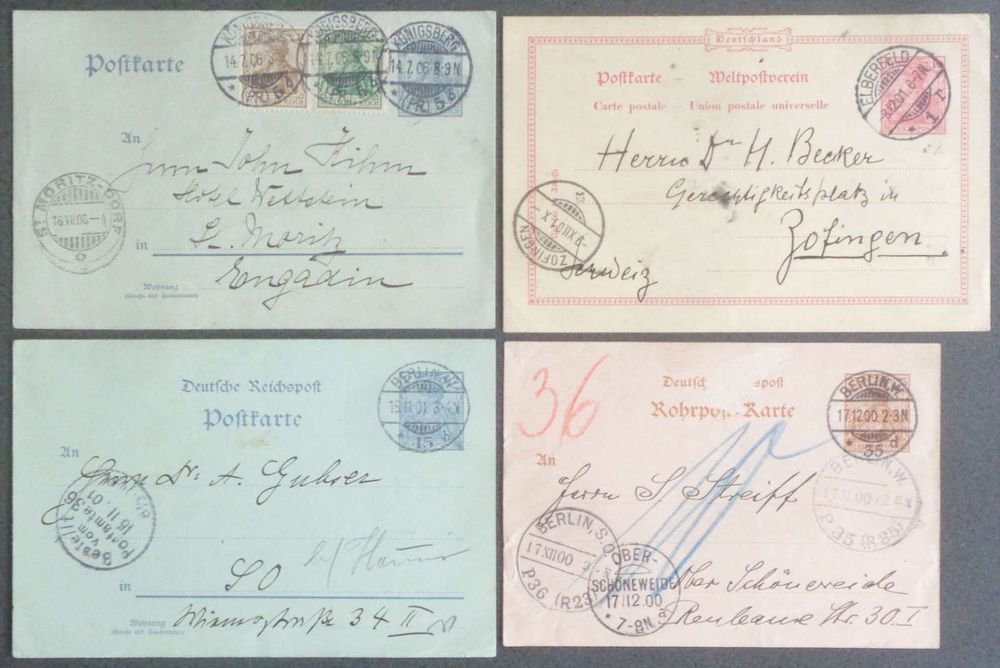 KÖNIGSBERG
14.7.06
(PR) 5 d
KÖNIGSBERG
14.7.06. 8-9N
(PR) 5 d
KÖNIGSBERG
14.7.06 8-9N
(PR) 5 d
REICH
REICH
Postkarte
An
John
Hotel Wettstein
in St. Moritz
Engadin
ST. MORITZ-DORF
16.VII.06.
Wohnung
(Straße und Hausnummer)
Deutschland
Postkarte – Weltpostverein
Carte postale – Union postale universelle
ELBERFELD
8.12.01. 6-7N
* 1 r
Herrn Dr H. Becker
Gerechtigkeitsplatz in
Zofingen
Schweiz
ZOFINGEN
-9.XII.01.X
Deutsche Reichspost
Postkarte
BERLIN, N.W.
15.11.01. 3-4N
* 15
An
Herrn Dr. A. Gubser
in SO
34 II
Bestellt
vom
Postamte 36
15. 11. 01
Wohnung
(Straße und Hausnummer)
36
Deutsch spost
Rohrpost-Karte
BERLIN, W.
17.12.00. 2-3N
* 35 d
BERLIN. W.
17.XII.00
P35 (R 35)
An
Herrn S. Streiff
Ober Schöneweide
Str. 30 I
BERLIN, S.O.
17.XII.00
P36 (R23)
OBER-
SCHÖNEWEIDE
17/12.00
* 7-8N. a